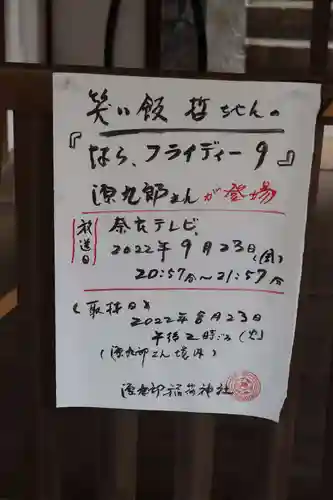 笑い飯 哲ちゃんの
『なら、フライデー9』
源九郎さんが登場
放送日
奈良テレビ、
2022年9月23日(金)
20:57分～21:57分
(取材日)
2022年8月23日
午後2時ごろ(火)
(源九郎さん境内)
源九郎稲荷神社